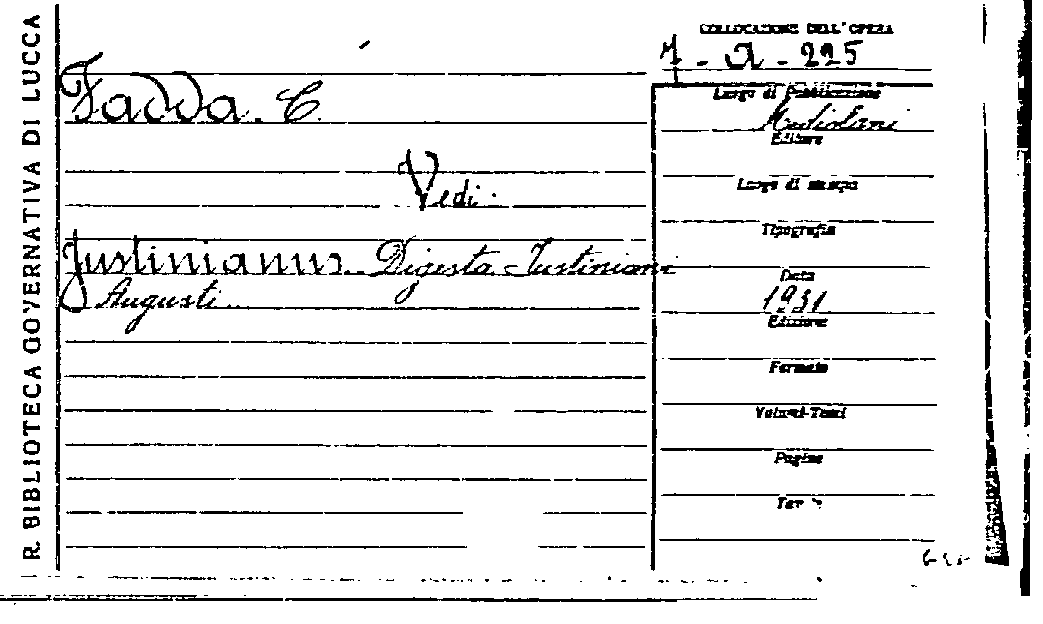 R. BIBLIOTECA GOVERNATIVA DI LUCCA
COLLOCAZIONE DELL'OPERA
A - 225
Fadda. C.
Luogo di Pubblicazione
Mediolani
Editore
Vedi.
Luogo di stampa
Tipografia
Justinianus. Digesta Justiniani
Augusti.
Data
1931
Edizione
Formato
Volumi-Tomi
Pagine